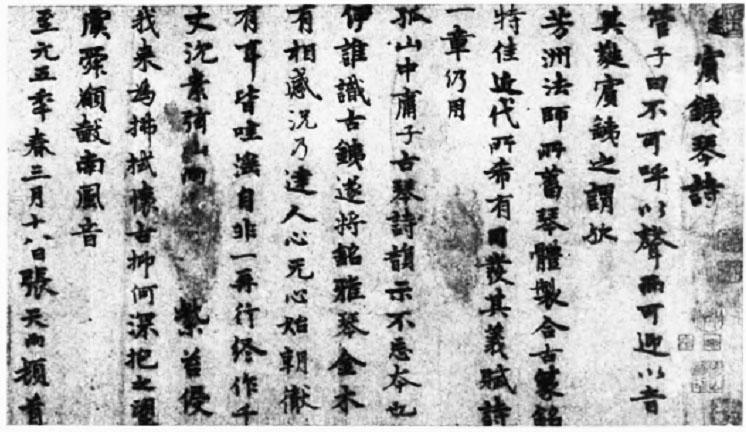 賓銕琴詩
管子曰不可呼以聲而可迎以音
其蕤賓銕之謂歟
芳洲法師所蓄琴體製合古篆銘
特佳近代所希有因發其義賦詩
一章仍用
孤山中庸子古琴詩韻示不忘本也
伊誰識古銕遂將銘雅琴金木
有相感況乃達人心无心始朝徹
有耳皆哇淫自非一再行終作千
丈沉素弦山雨 紫苔侵
我來為拂拭懷古抑何深抱之望
虞舜願鼓南風音
至元五年春三月十八日張天雨頓首